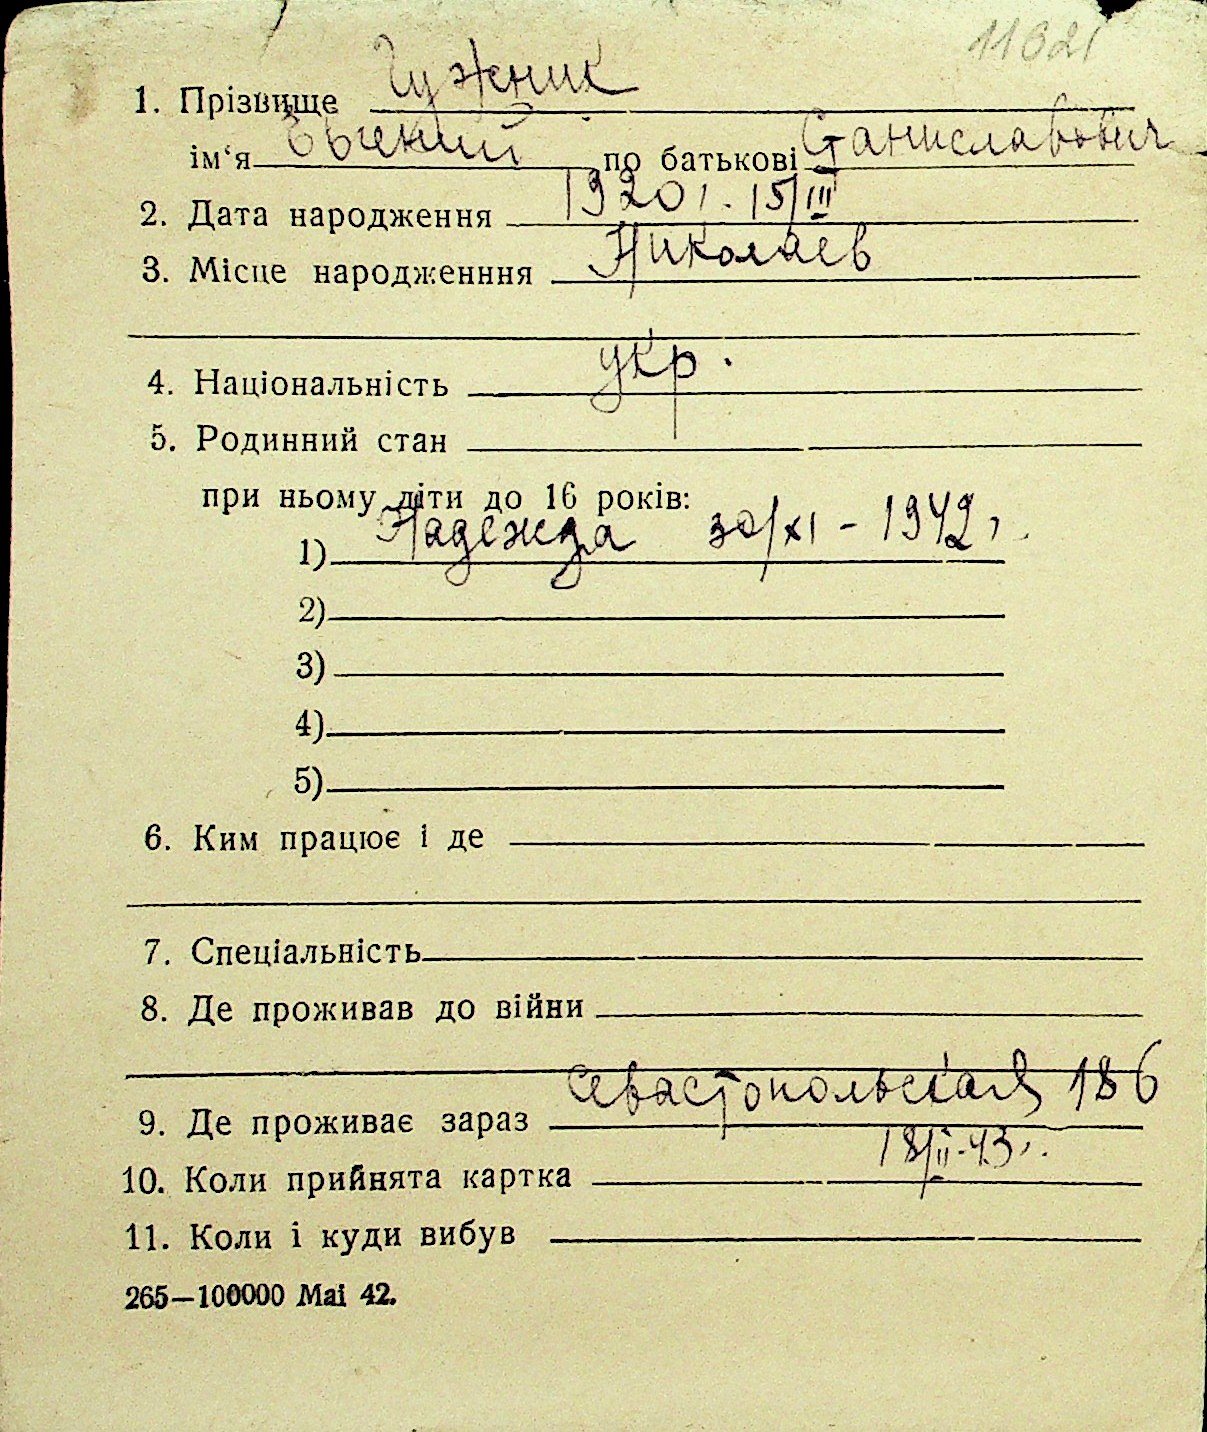 11321
1. Прізвище Чужник
ім‘я Евгений по батькові Станиславович
2. Дата народження 1920 г. 15/III
3. Місце народженння Николаев
4. Національність укр.
5. Родинний стан
при ньому діти до 16 років:
1) Надежда 30/XI - 1942 г.
2)
3)
4)
5)
6. Ким працює і де
7. Спеціальність
8. Де проживав до війни
9. Де проживає зараз Севастопольская 186
10. Коли прийнята картка 18/II-43 г.
11. Коли і куди вибув
265—100000 Mai 42.